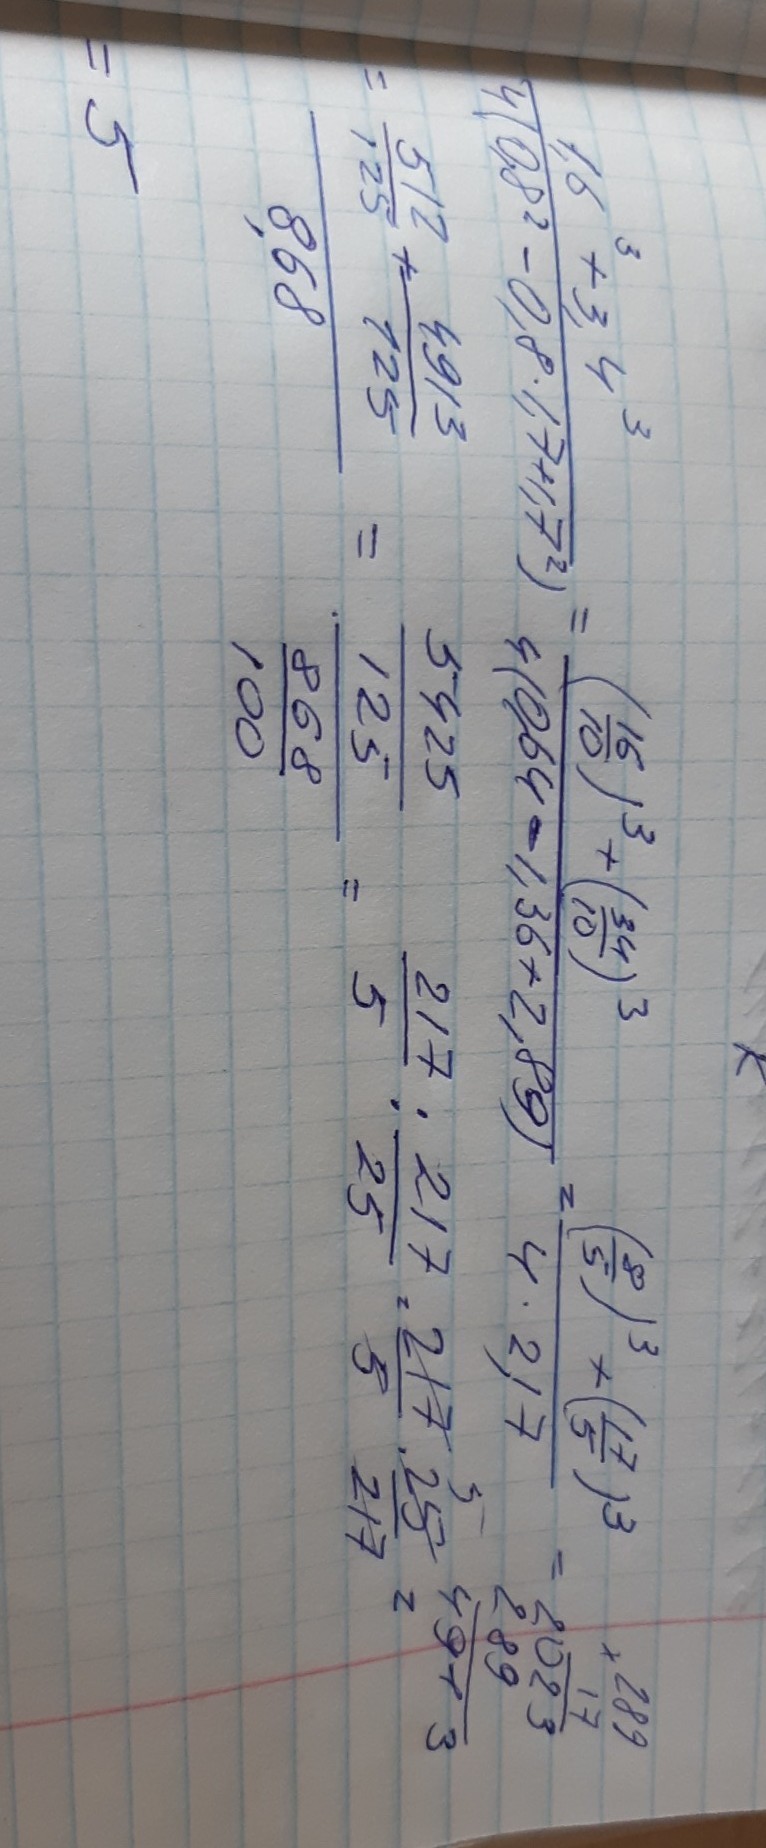 (1,6³ + 3,4³) / (4(0,8² - 0,8 · 1,7 + 1,7²)) = ((16/10)³ + (34/10)³) / (4(0,64 - 1,36 + 2,89)) = ((8/5)³ + (17/5)³) / (4 · 2,17) =
= (512/125 + 4913/125) / 8,68 = (5425/125) / (868/100) = 217/5 : 217/25 = 217/5 · 25/217 =
5
= 5
× 289
17
2023
289
4913